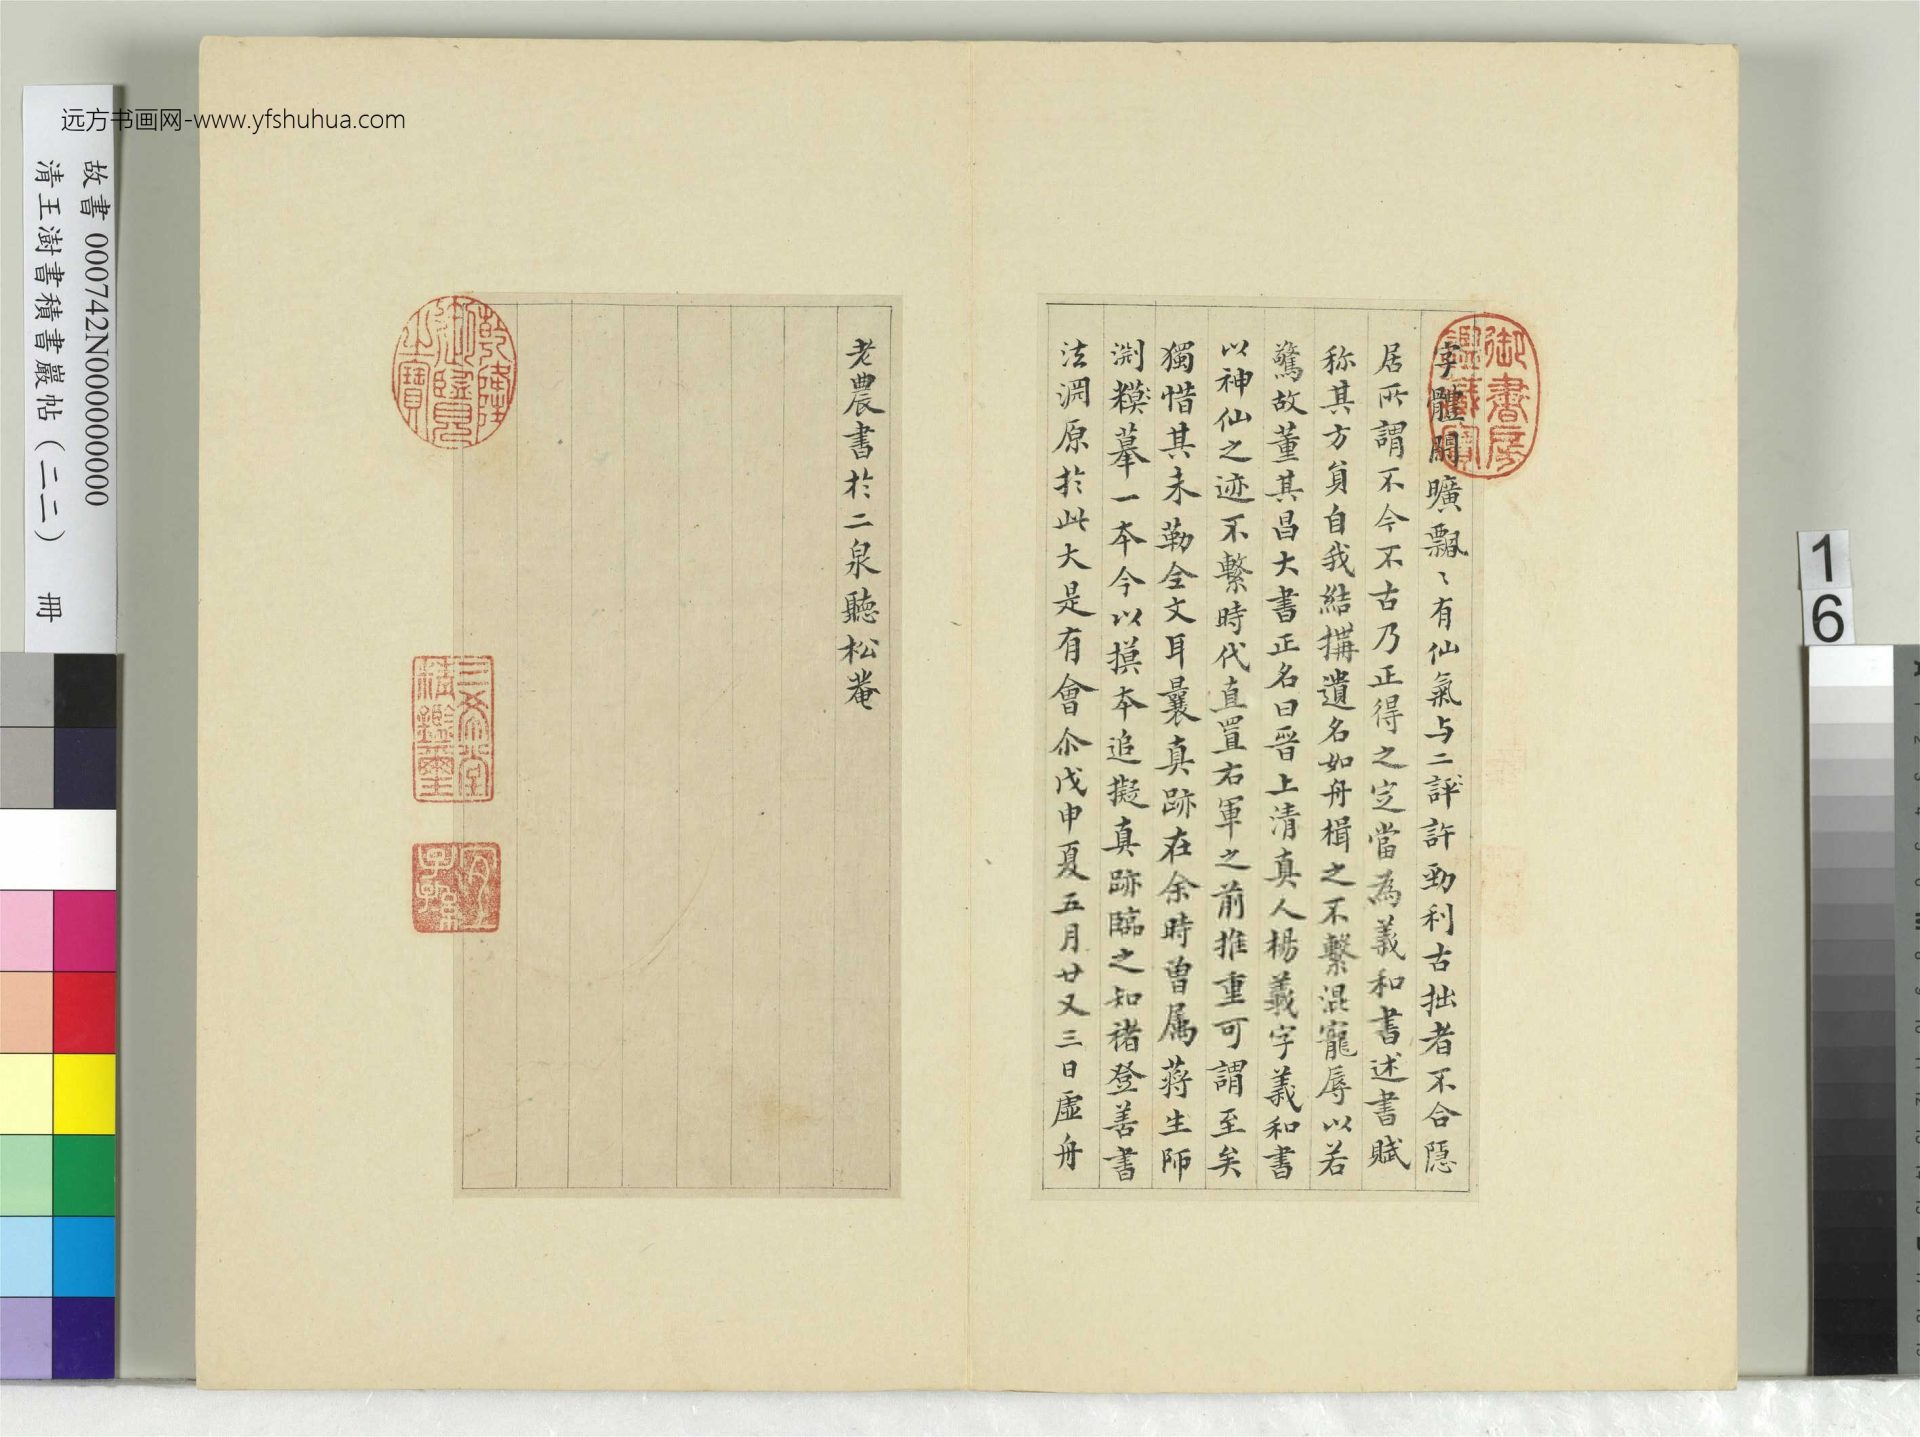 远方书画网-www.yfshuhua.com
故書 000742N000000000
清王澍書積書巖帖(二二) 冊
16
御書房鑑藏寶
字體閒曠飄〻有仙氣与二評許勁利古拙者不合隱
居所謂不今不古乃正得之定當為羲和書述書賦
称其方負自我結搆遺名如舟楫之不繫混寵辱以若
驚故董其昌大書正名曰晉上清真人楊羲字羲和書
以神仙之迹不繫時代直置右軍之前推重可謂至矣
獨惜其未勒全文耳曩真跡在余時曾属蒋生师
渊糢摹一本今以摸本追擬真跡臨之知褚登善書
法渊原於此大是有會尒戊申夏五月廿又三日虛舟
老農書於二泉聽松菴
乾隆御覽之寶
三希堂精鑑璽
宜子孫